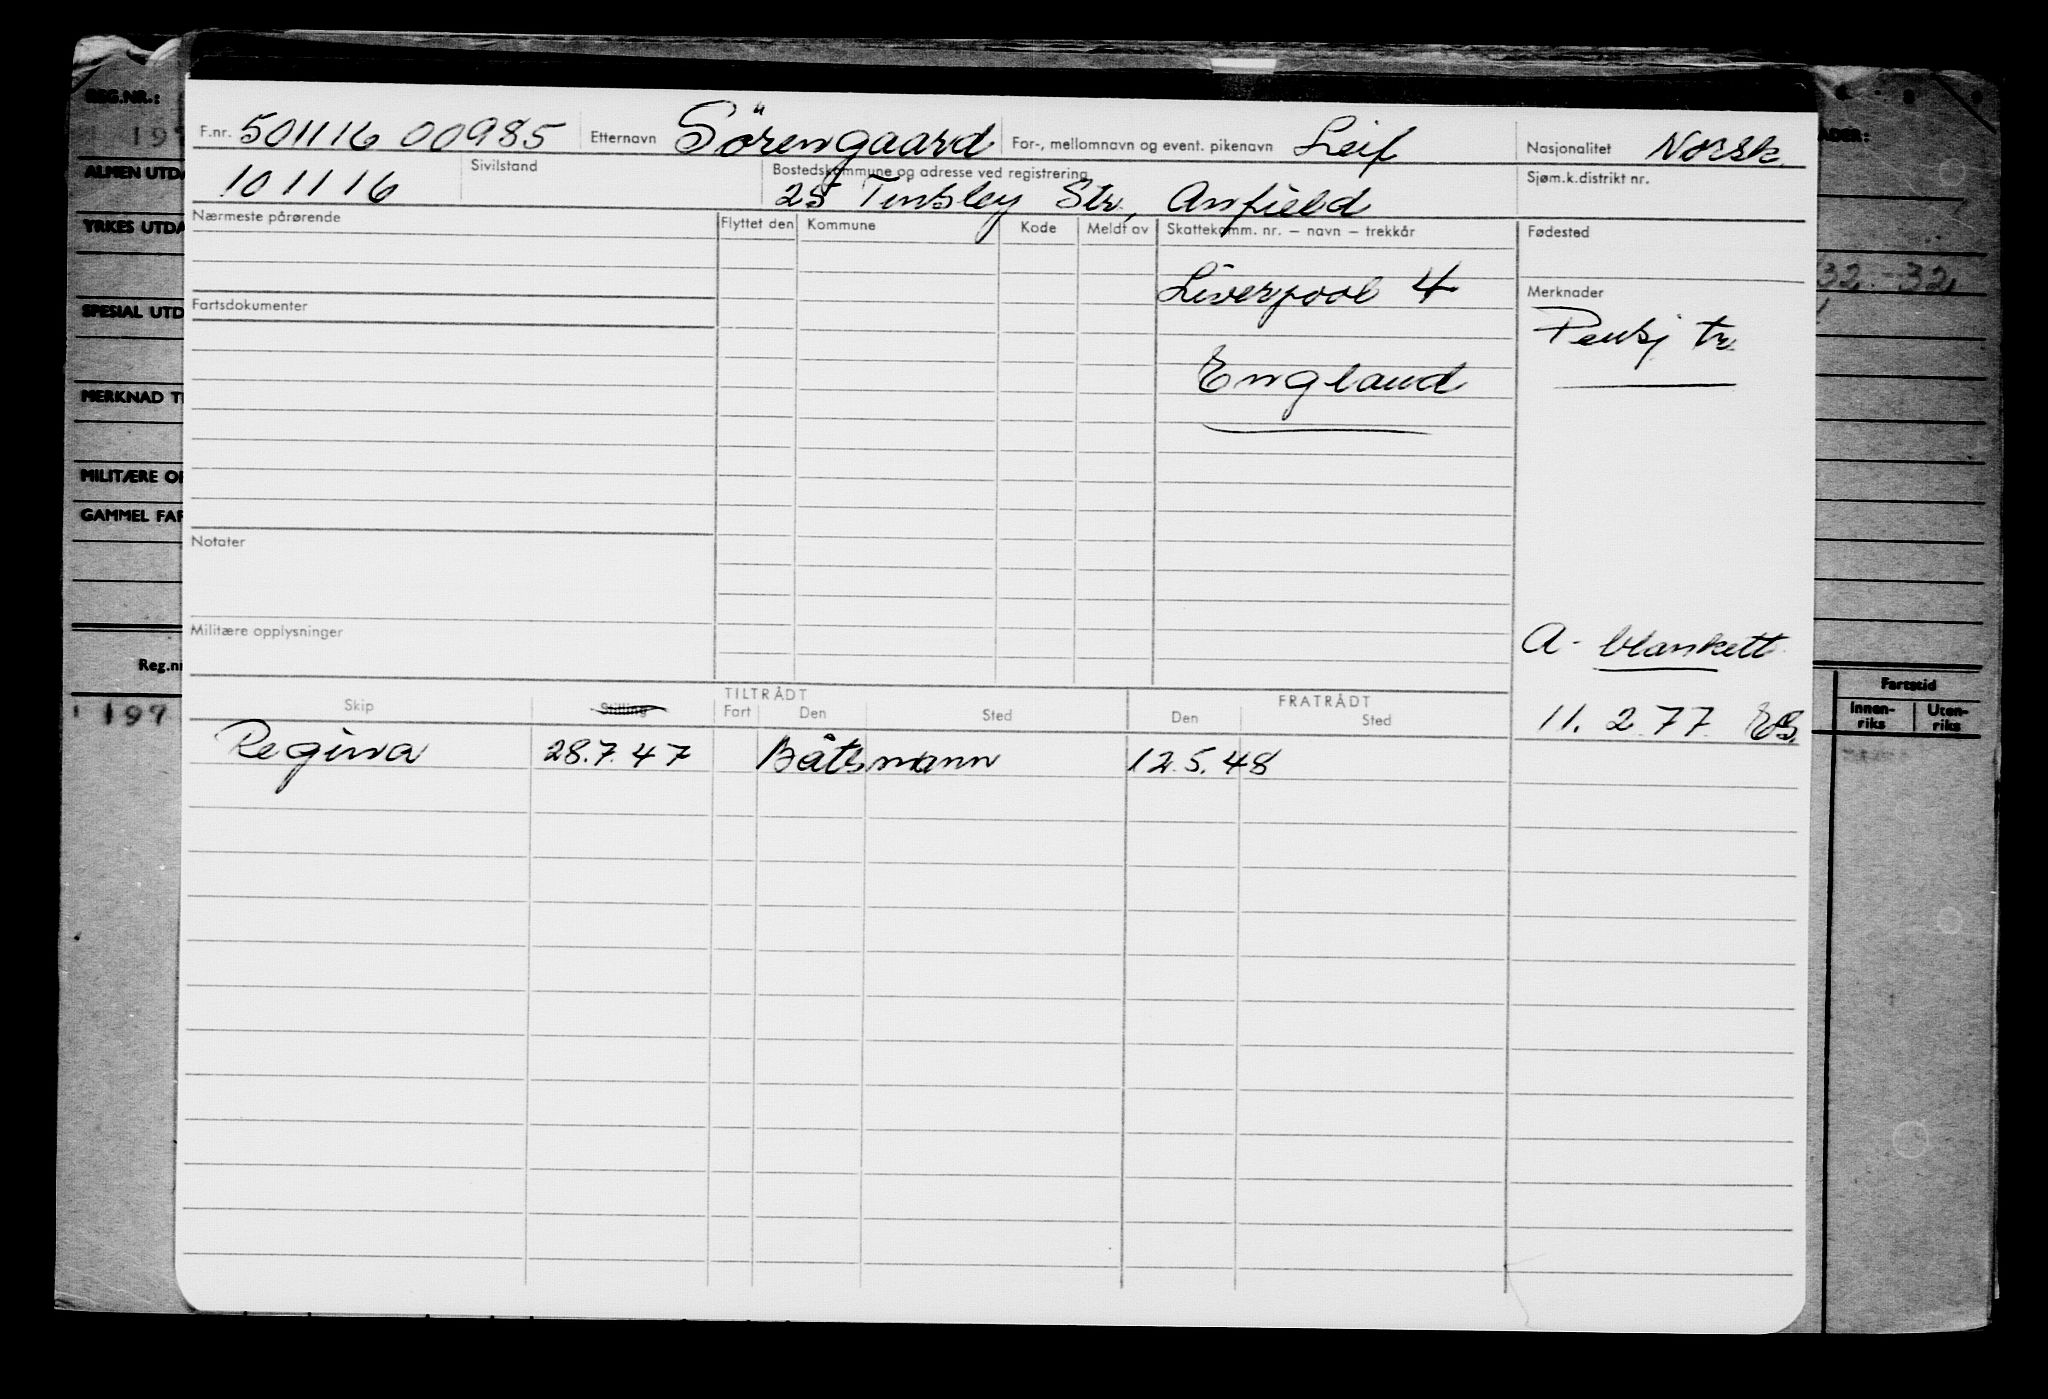 REG.NR.:
197
ALMEN UTDA
YRKES UTDA
SPESIAL UTD
MERKNAD T
MILITÆRE OP
GAMMEL FAR
Reg.nr
197
F.nr. 501116 00985 Etternavn Sörengaard For-, mellomnavn og event. pikenavn Leif Nasjonalitet Norsk
101116 Sivilstand Bostedskommune og adresse ved registrering Sjøm.k.distrikt nr.
25 Tinsley Str., Anfield
Nærmeste pårørende Flyttet den Kommune Kode Meldt av Skattekomm. nr. – navn – trekkår Fødested
Liverpool 4
Fartsdokumenter Merknader
Pensj tr.
England
Notater
Militære opplysninger
A- blankett
11. 2. 77. EB.
TILTRÅDT FRATRÅDT
Skip Stilling Fart Den Sted Den Sted
Regina 28.7.47 Båtsmann 12.5.48
ADER:
32. 32
Fartstid
Innen-riks Uten-riks